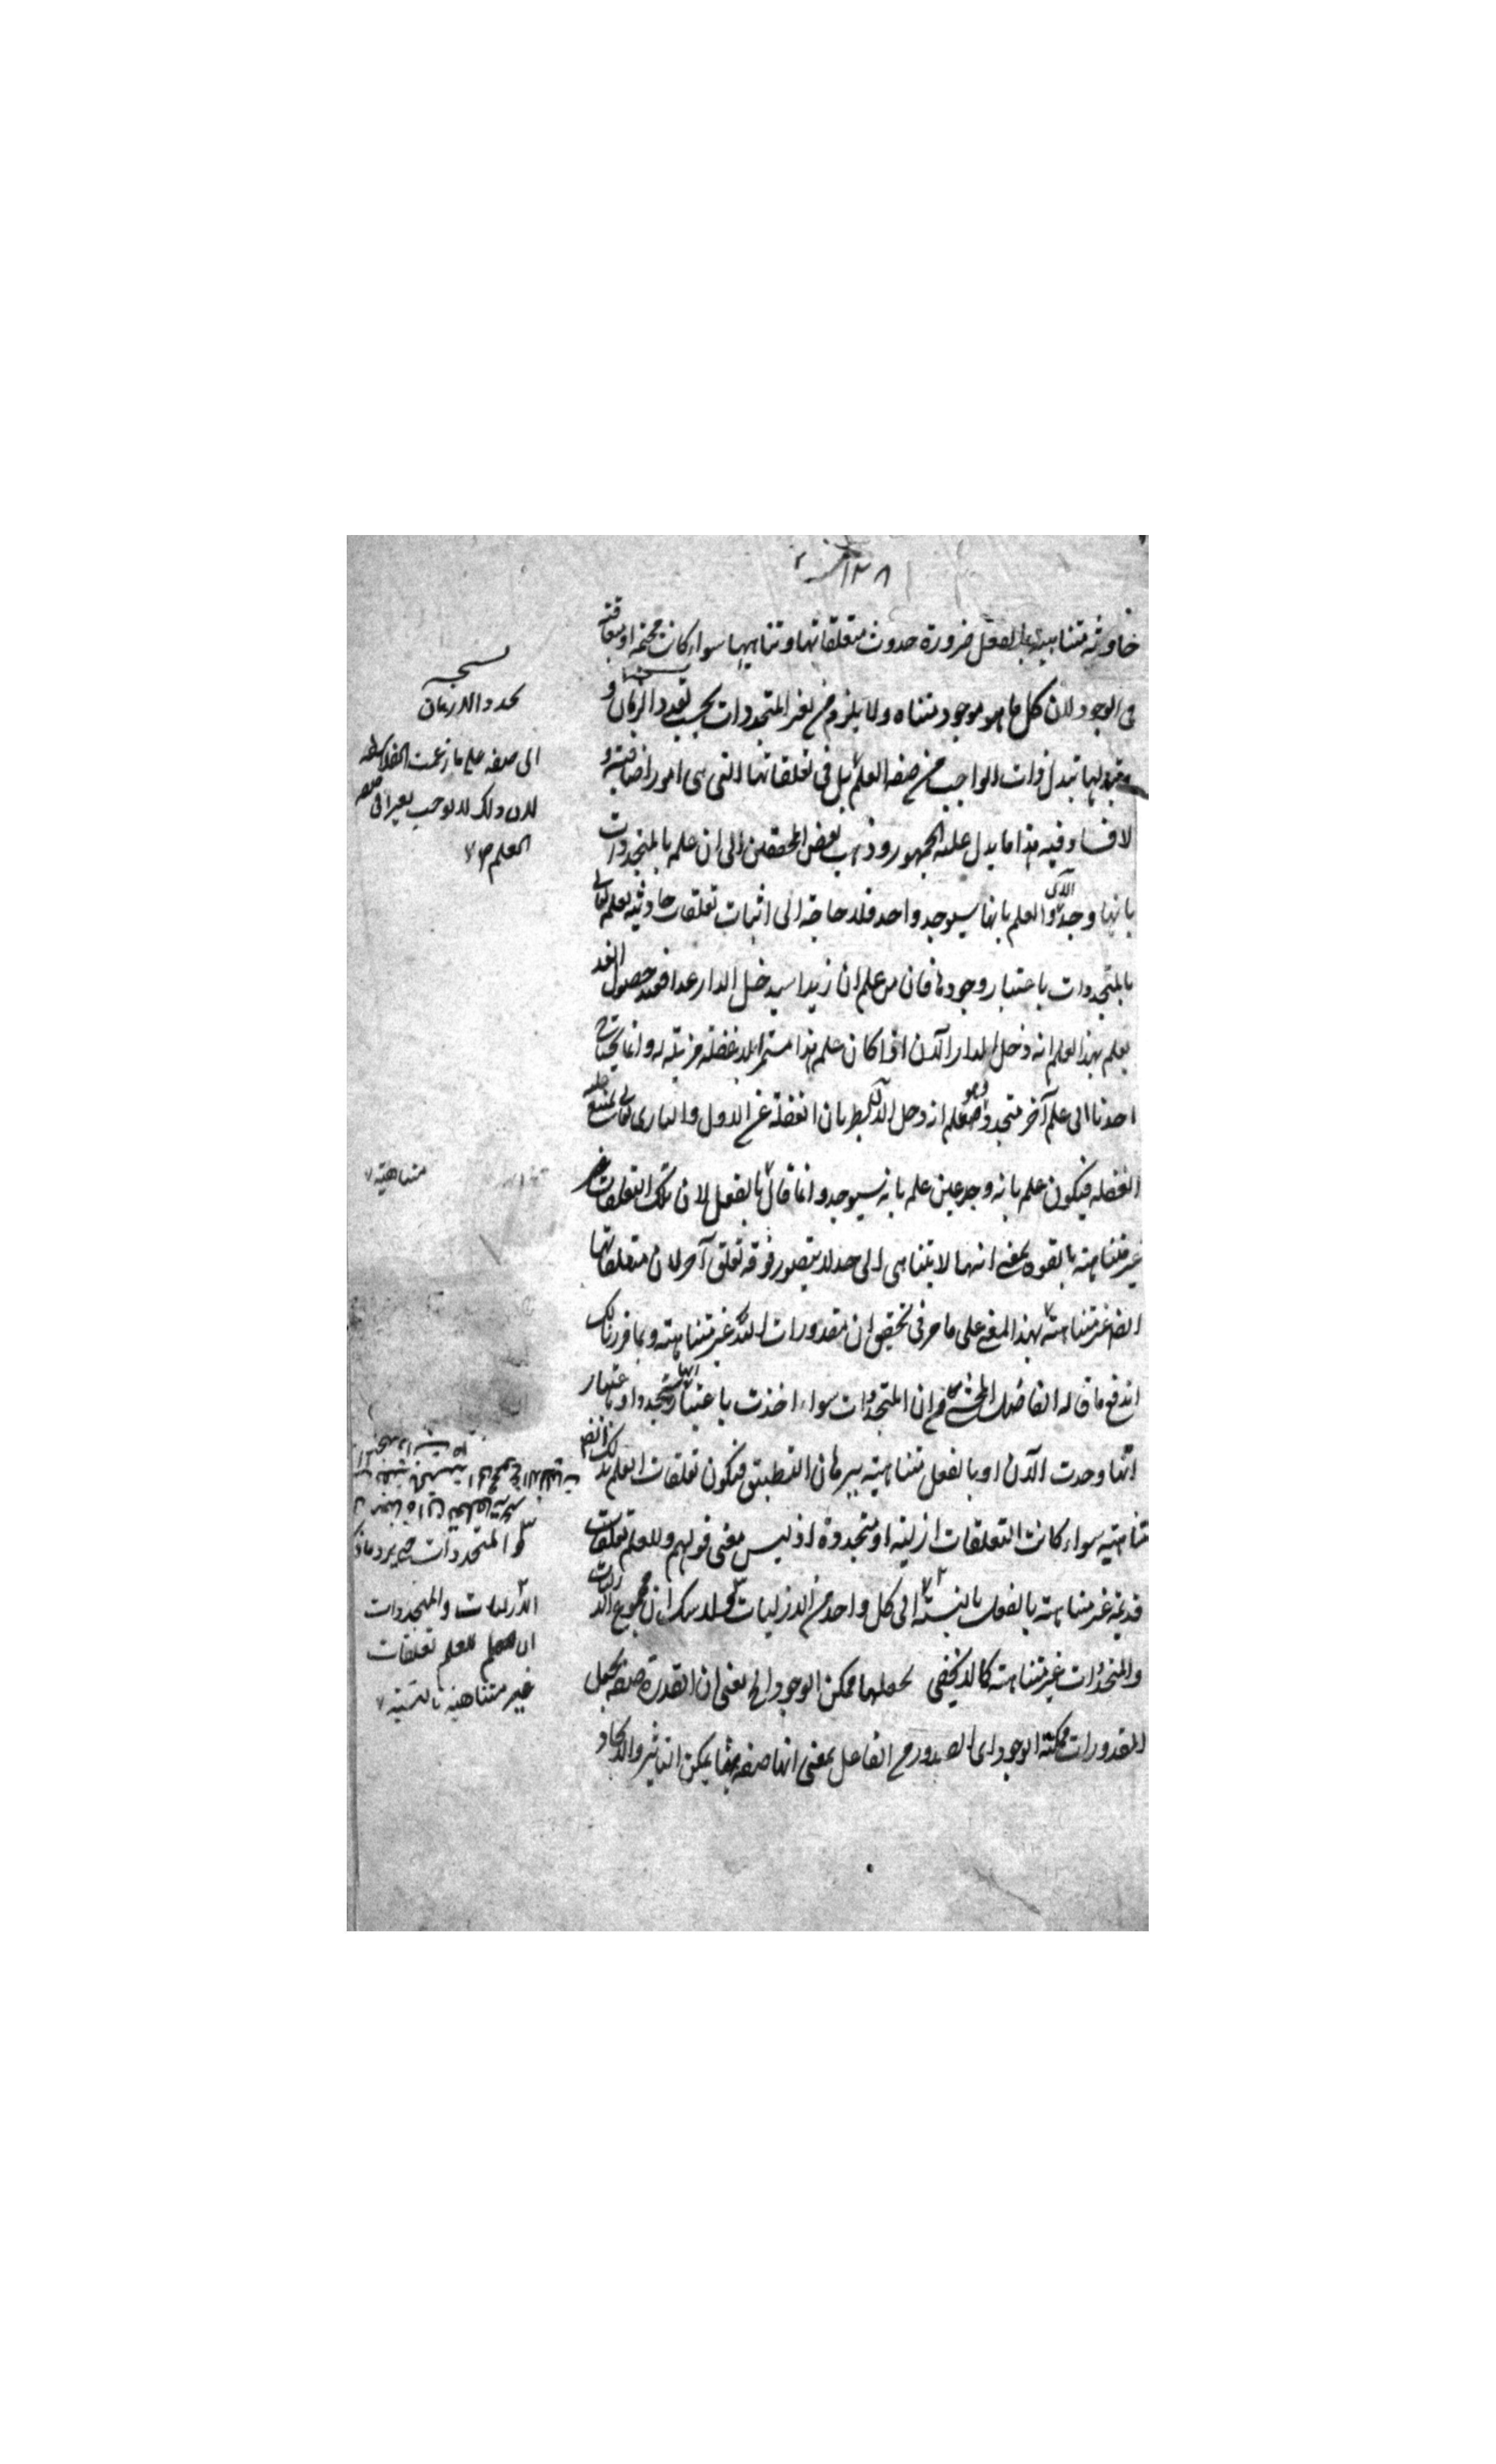 ١٢٨
حادثة متناهية بالفعل ضرورة حدوث متعلقاتها وتناهيها سواء كانت مجتمعة او متعاقبة
في الوجود لان كل ما هو موجود متناه ولا يلزم من تغير المتجددات بحسب تعدد الزمان و
تبدلها تبدل ذات الواجب من صفة العلم بل في تعلقاتها التي هى امور اضافية و
لا فساد فيه هذا ما يدل عليه الجمهور وذهب بعض المحققين الى ان علمه بالمتجددات
بانها وجدت الآن والعلم بانها سيوجد واحد فلا حاجة الى اثبات تعلقات حادثة لعلمه تعالى
بالمتجددات باعتبار وجودها فان من علم ان زيدا سيدخل الدار غدا فعند حصول الغد
يعلم بهذا العلم انه دخل الدار الآن اذا كان علمه هذا مستمرا بلا غفلة مزيلة له وانما يحتاج
احدنا الى علم آخر متجدد وهو علم انه دخل الآن لطريان الغفلة عن الاول والبارى تعالى يمتنع عليه
الغفلة فيكون علمه بانه وجد عين علمه بانه سيوجد وانما قال بالفعل لان تلك التعلقات
غير متناهية بالقوة بمعنى انها لا يتناهى الى حد لا يتصور فوقه تعلق آخر لان متعلقاتها
ايضا غير متناهية بهذا المعنى على ما مر في تحقيق ان مقدورات الله غير متناهية وبما قررنا لك
اندفع ما قاله الفاضل المحشى من ان المتجددات سواء اخذت باعتبار انها ستجدد او باعتبار
انها وجدت الآن او بالفعل متناهية ببرهان التطبيق فيكون تعلقات العلم بذلك ايضا
متناهية سواء كانت التعلقات ازلية او متجددة اذ ليس معنى قولهم وللعلم تعلقات
قديمة غير متناهية بالفعل بالنسبة الى كل واحد من الازليات ولا شك ان مجموع الازليات
والمتجددات غير متناهية كما لا يخفى لجعلها ممكن الوجود الخ يعنى ان القدرة صفة يجعل
المقدورات ممكنة الوجود اى الصدور من الفاعل بمعنى انها صفة بها يمكن التاثير والايجاد
الى صفة على ما زعمت الفلاسفة
لان ذلك لا يوجب تغيرا في صفة
العلم
متناهية
والمتجددات
الازليات والمتجددات
ان العلم تعلقات
غير متناهية بالنسبة